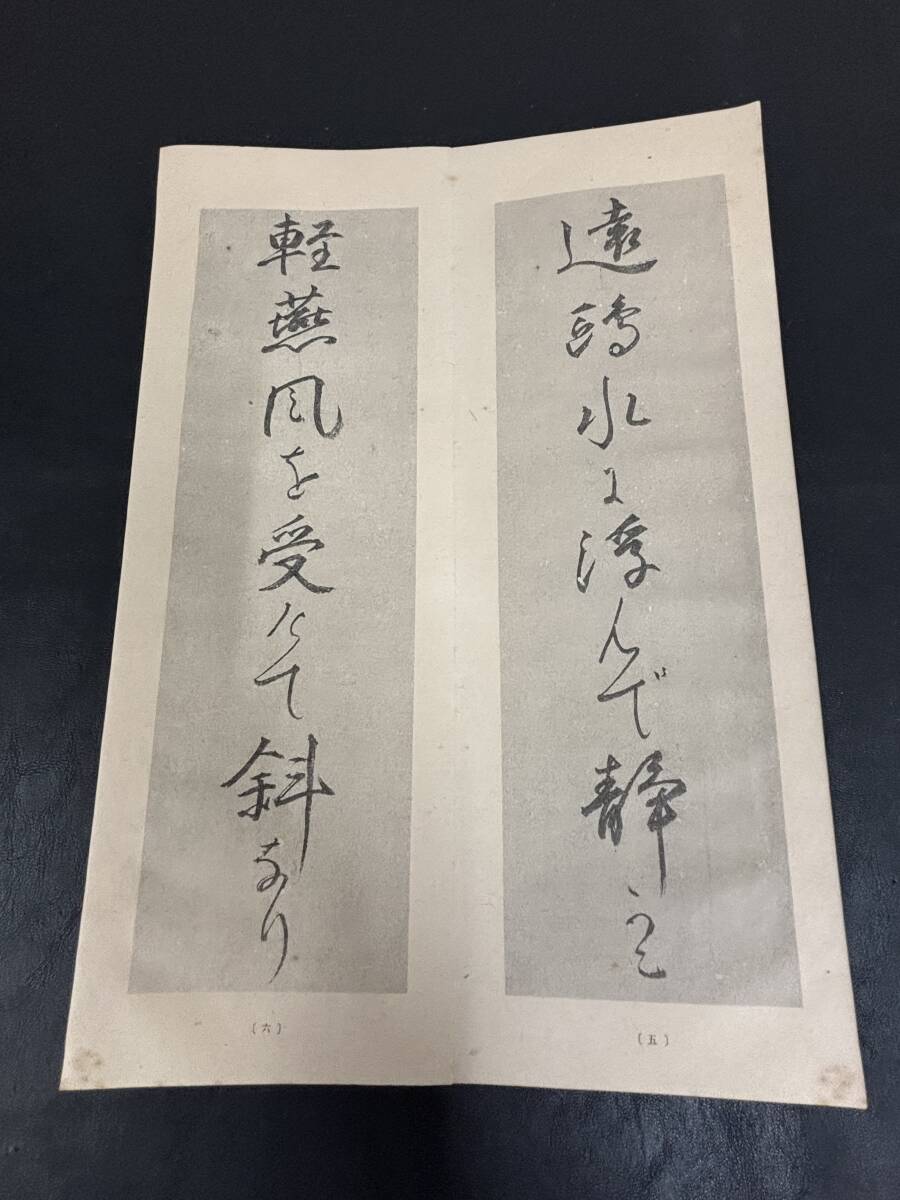 遠鴎水に浮んで静かに
(五)
軽燕風を受けて斜なり
(六)